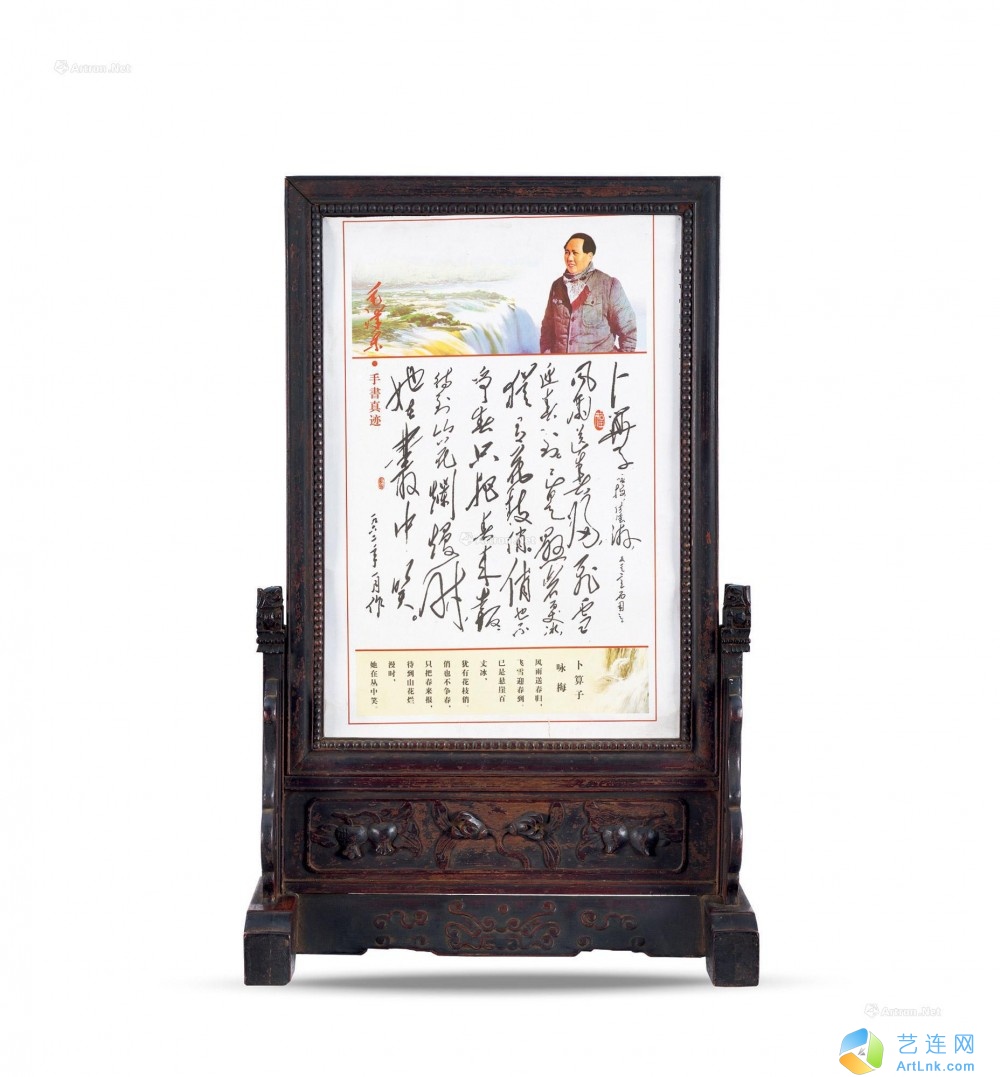 Artron.Net
毛泽东
•手書真迹
卜算子
风雨送春归飞雪
迎春到已是悬崖百丈冰
犹有花枝俏俏也不
争春只把春来報
待到山花爛熳时
她在叢中笑。
一九六二年一月作
卜算子
咏梅
风雨送春归，
飞雪迎春到。
已是悬崖百
丈冰，
犹有花枝俏。
俏也不争春，
只把春来报，
待到山花烂
漫时，
她在丛中笑。
Artron.Net
艺连网
ArtLnk.com